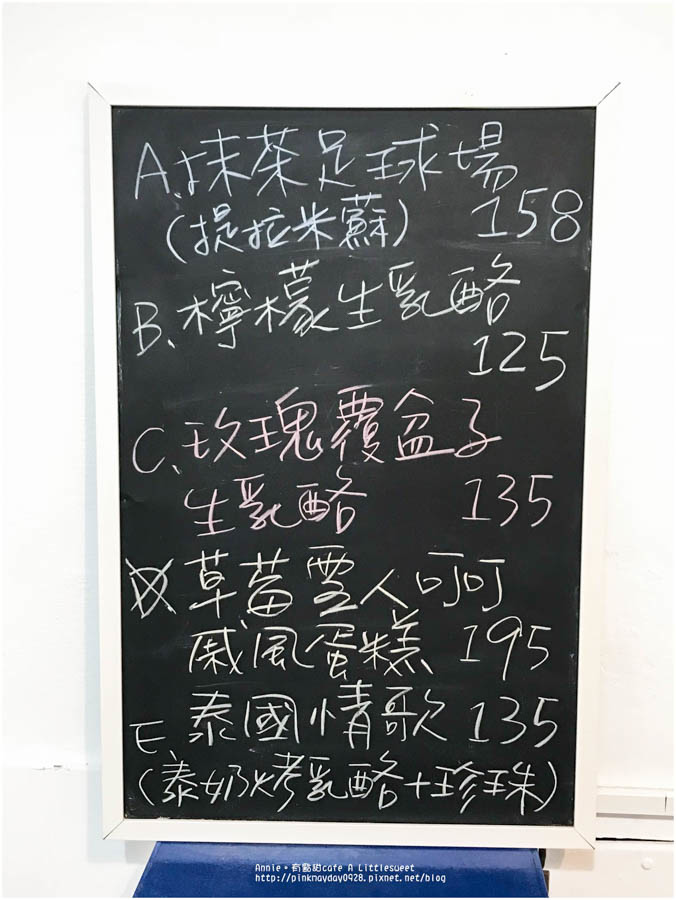 A.抹茶足球場
(提拉米蘇) 158
B、檸檬生乳酪
125
C、玫瑰覆盆子
生乳酪 135
D、草莓雪人可可
戚風蛋糕 195
E、泰國情歌 135
(泰奶烤乳酪+珍珠)
Annie。有點甜cafe A Littlesweet
http://pinkmayday0928.pixnet.net/blog